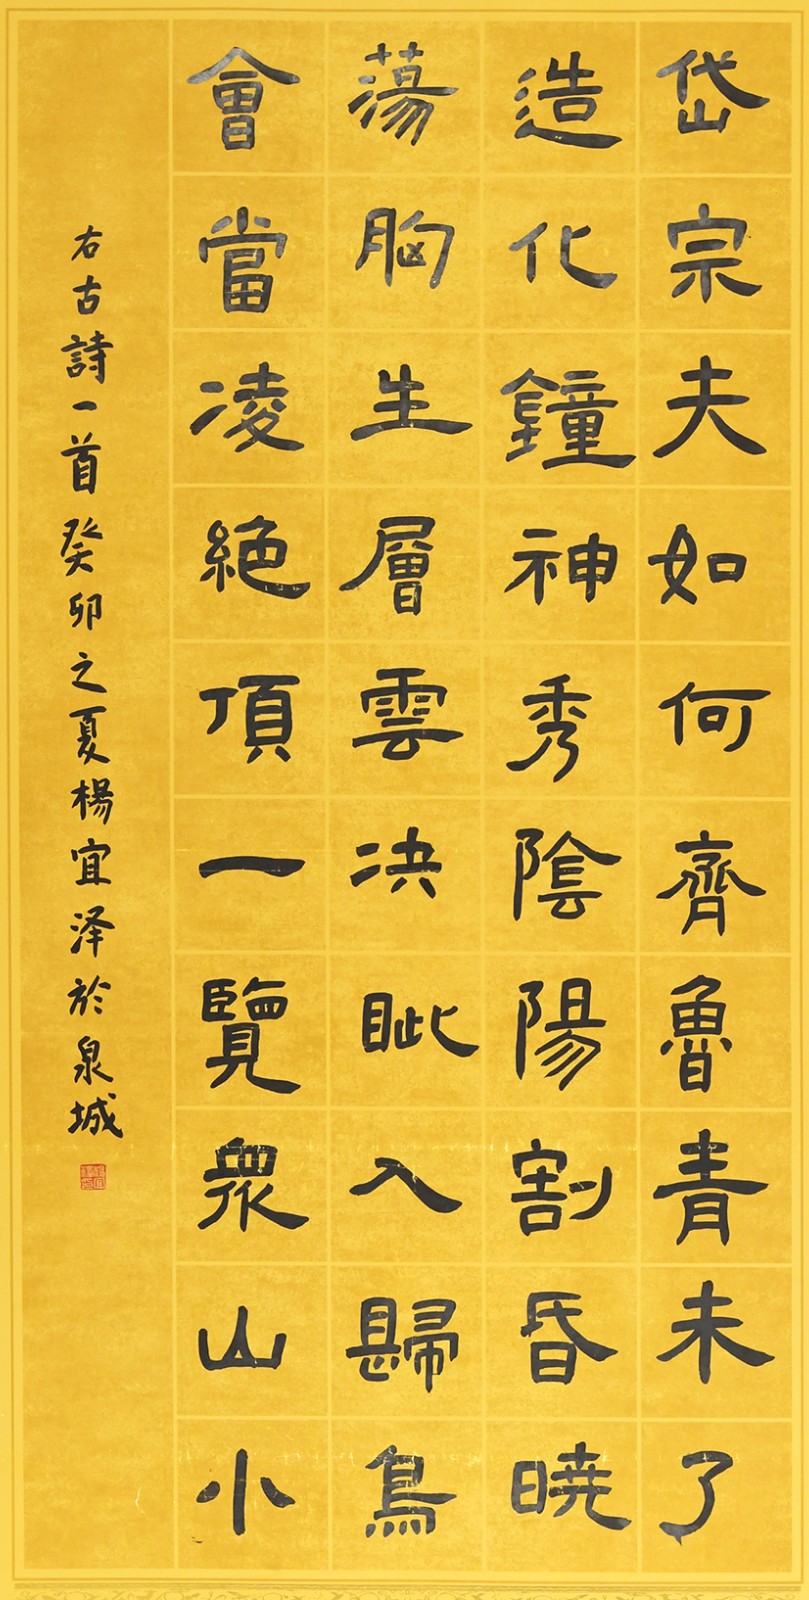 岱宗夫如何齊魯青未了
造化鐘神秀陰陽割昏曉
蕩胸生層雲决眦入歸鳥
會當凌絕頂一覽衆山小
右古詩一首癸卯之夏楊宜泽於泉城